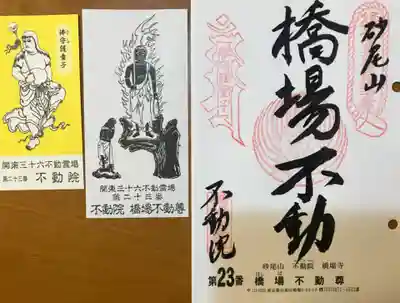 持守護童子
関東三十六不動霊場
第二十三番 不動院
関東三十六不動霊場
第二十三番
不動院 橋場不動尊
砂尾山
橋場不動
不動院
砂尾山 不動院 橋場寺
第23番 橋場不動尊